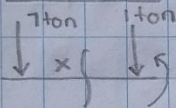 7ton 1ton
x